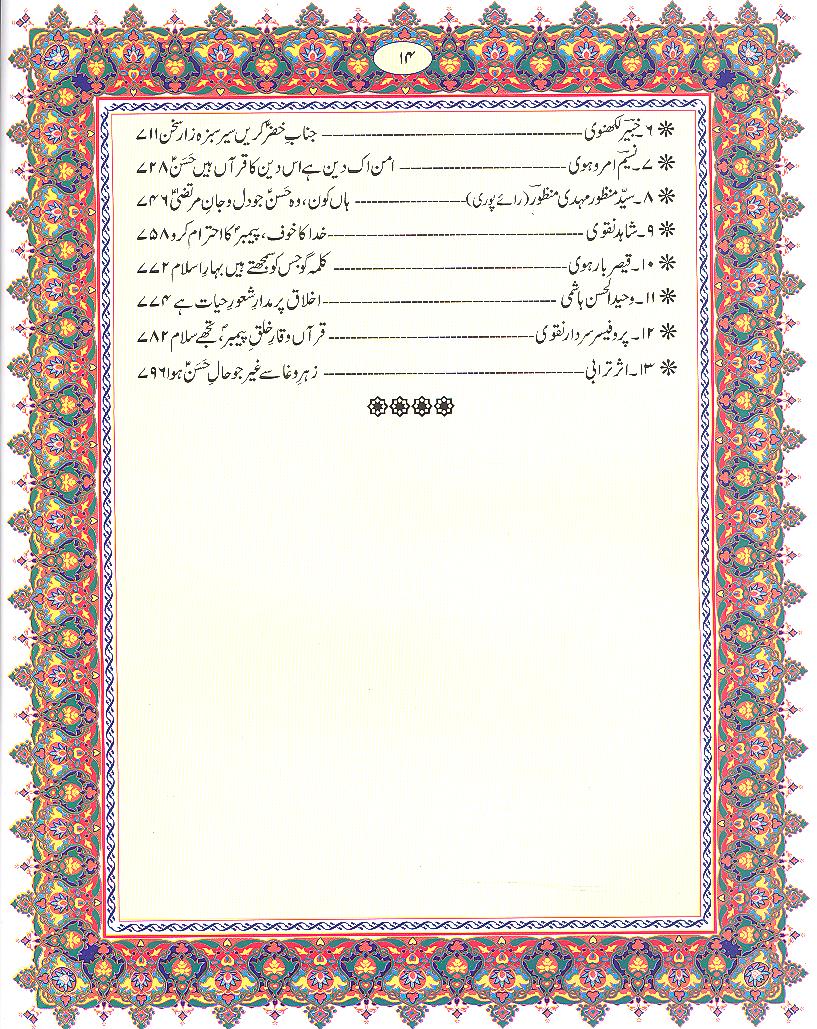 ۱۴
۶ خبیر لکھنوی ------ جنابِ خضرؑ کریں سیرِ سبزہ زارِ سخن ۷۱۱
۷۔ نسیمؔ امروہوی ------ امن اک دین ہے اس دین کا قرآں ہیں حَسَنؑ ۷۲۸
۸۔ سیّد منظور مہدی منظورؔ (رائے پوری) ------ ہاں کون، وہ حَسَنؑ جو دل و جانِ مرتضیٰؑ ۷۴۶
۹۔ شاہد نقوی ------ خدا کا خوف، پیمبرؐ کا احترام کرو ۷۵۸
۱۰۔ قیصر بارہوی ------ کلمہ گو جس کو سمجھتے ہیں بہارِ اسلام ۷۷۲
۱۱۔ وحید الحسن ہاشمی ------ اخلاق پر مدارِ شعورِ حیات ہے ۷۷۴
۱۲۔ پروفیسر سردار نقوی ------ قرآں وقارِ خلقِ پیمبرؐ، تجھے سلام ۷۸۲
۱۳۔ اثر ترابی ------ زہرِ دغا سے غیر جو حالِ حَسَنؑ ہوا ۷۹۶